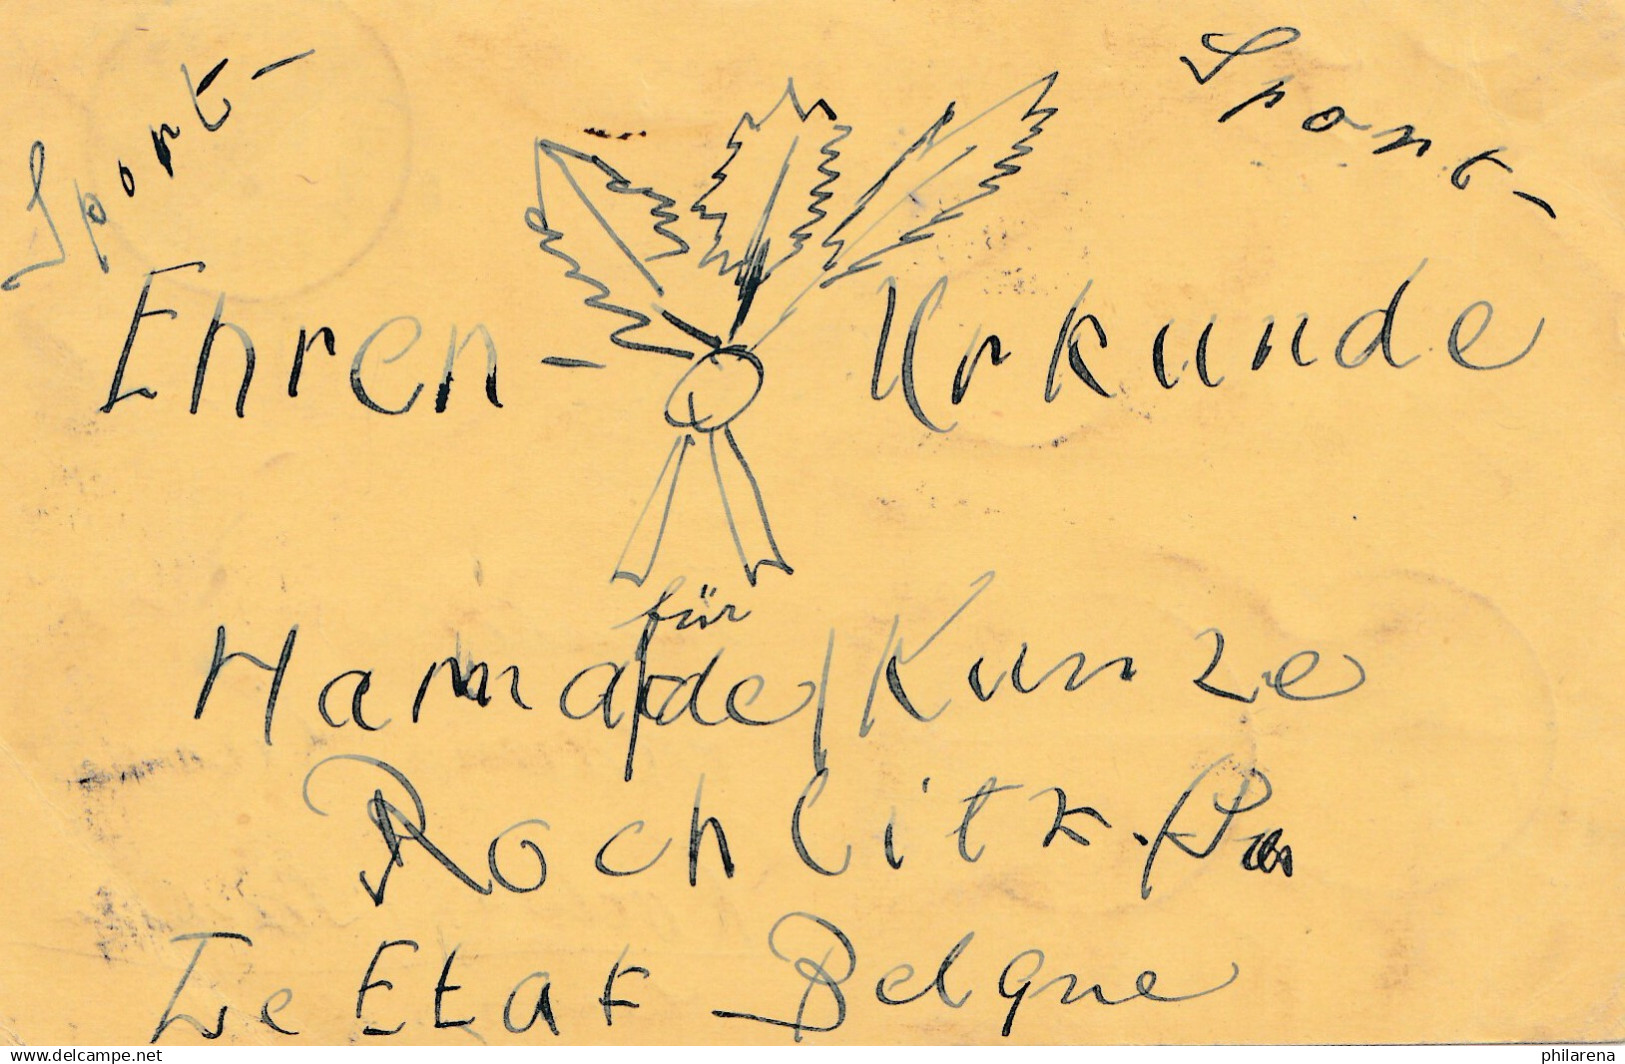 Sport-
Sport-
Ehren- Urkunde
für
Kunze
Rochlitz.
Le Etat Belgne
www.delcampe.net
philarena